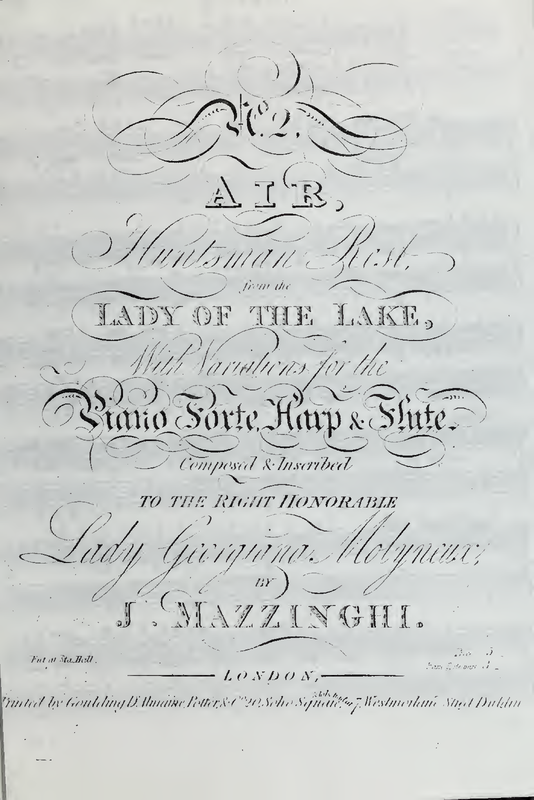 No. 2.
AIR,
Huntsman Rest,
from the
LADY OF THE LAKE,
With Variations for the
Piano Forte, Harp & Flute.
Composed & Inscribed
TO THE RIGHT HONORABLE
Lady Georgiana Molyneux,
BY
J. MAZZINGHI.
Ent. at Sta. Hall.
LONDON,
Printed by Goulding, D'Almaine, Potter, & Co. 20, Soho Square, 7, Westmorland Street Dublin